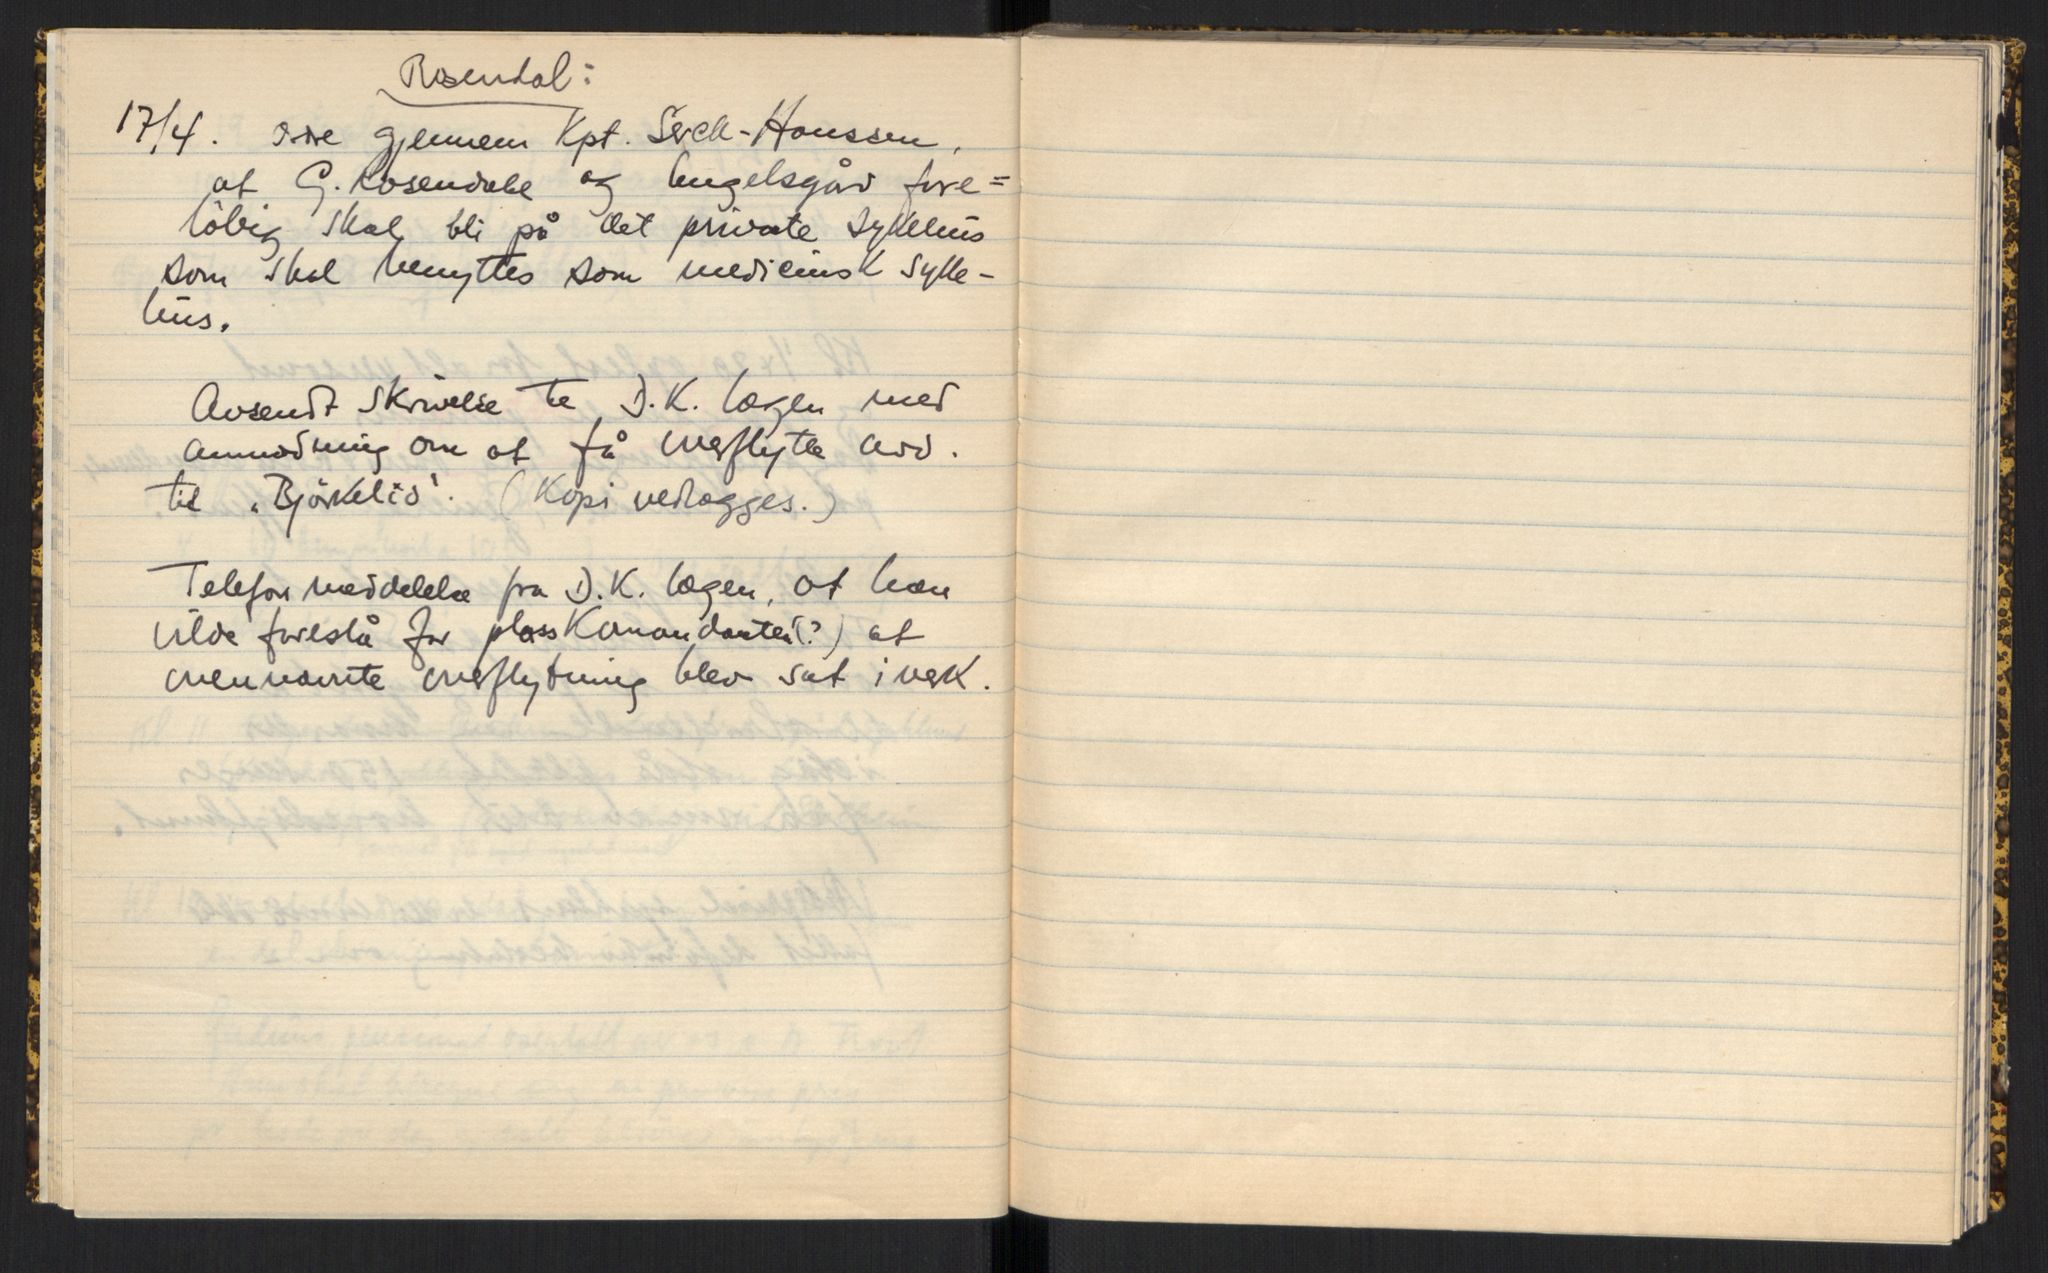 Rosendal:
17/4. Ordre gjennem Kpt. Serck-Hanssen,
at G. Rosendale og Engelsgård fore=
löbig skal bli på det private sykehus
som skal benyttes som medicinsk syke-
hus.
Avsendt skrivelse til D.K. lægen med
anmodning om at få overflytte avd.
til "Björkelid". (Kopi vedlægges.)
Telefon meddelelse fra D.K. lægen, at han
vilde foreslå for plasskommandanten(?) at
ovennævnte overflytning blev sat i verk.